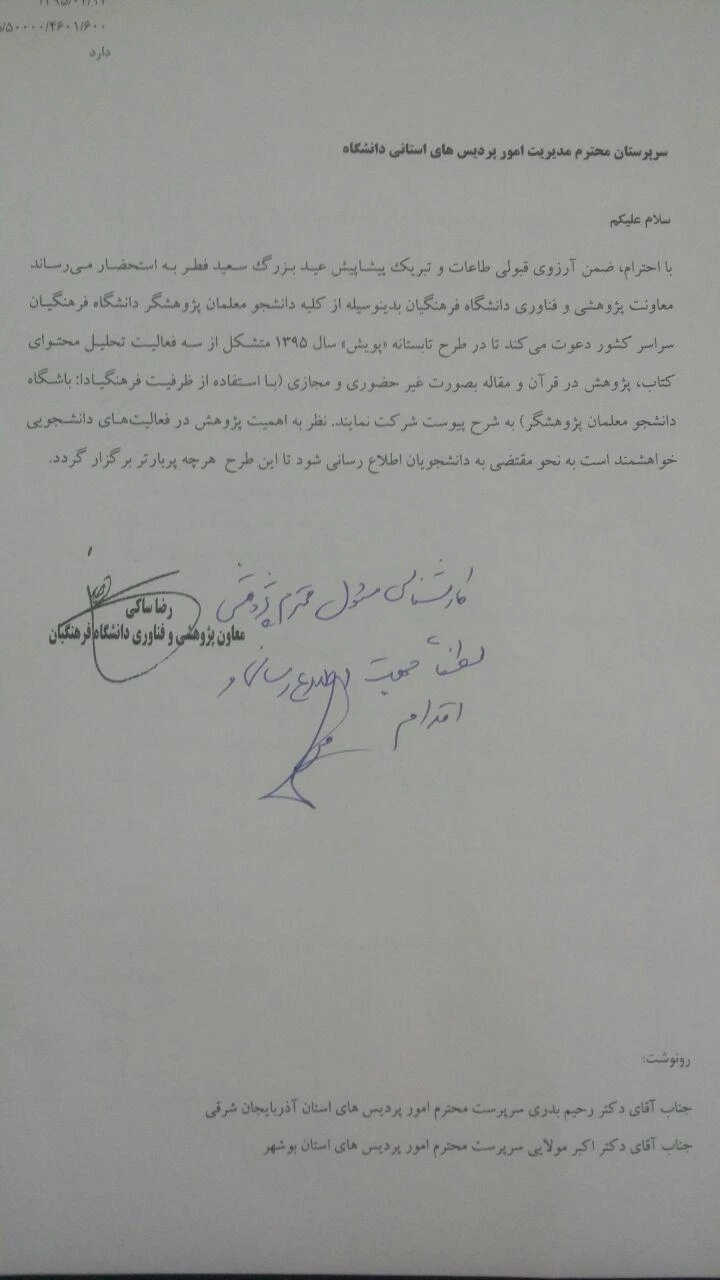 ۶۰۰/۴۶۰۱/۵۰۰۰۰/
دارد
سرپرستان محترم مدیریت امور پردیس های استانی دانشگاه
سلام علیکم
با احترام، ضمن آرزوی قبولی طاعات و تبریک پیشاپیش عید بزرگ سعید فطر به استحضار می‌رساند
معاونت پژوهشی و فناوری دانشگاه فرهنگیان بدینوسیله از کلیه دانشجو معلمان پژوهشگر دانشگاه فرهنگیان
سراسر کشور دعوت می‌کند تا در طرح تابستانه «پویش» سال ۱۳۹۵ متشکل از سه فعالیت تحلیل محتوای
کتاب، پژوهش در قرآن و مقاله بصورت غیر حضوری و مجازی (با استفاده از ظرفیت فرهنگیادا: باشگاه
دانشجو معلمان پژوهشگر) به شرح پیوست شرکت نمایند. نظر به اهمیت پژوهش در فعالیت‌های دانشجویی
خواهشمند است به نحو مقتضی به دانشجویان اطلاع رسانی شود تا این طرح هرچه پربارتر برگزار گردد.
رضا ساکی
معاون پژوهشی و فناوری دانشگاه فرهنگیان
کارشناس مسئول محترم پژوهشی
لطفاً جهت اطلاع رسانی و
اقدام
رونوشت:
جناب آقای دکتر رحیم بدری سرپرست محترم امور پردیس های استان آذربایجان شرقی
جناب آقای دکتر اکبر مولایی سرپرست محترم امور پردیس های استان بوشهر